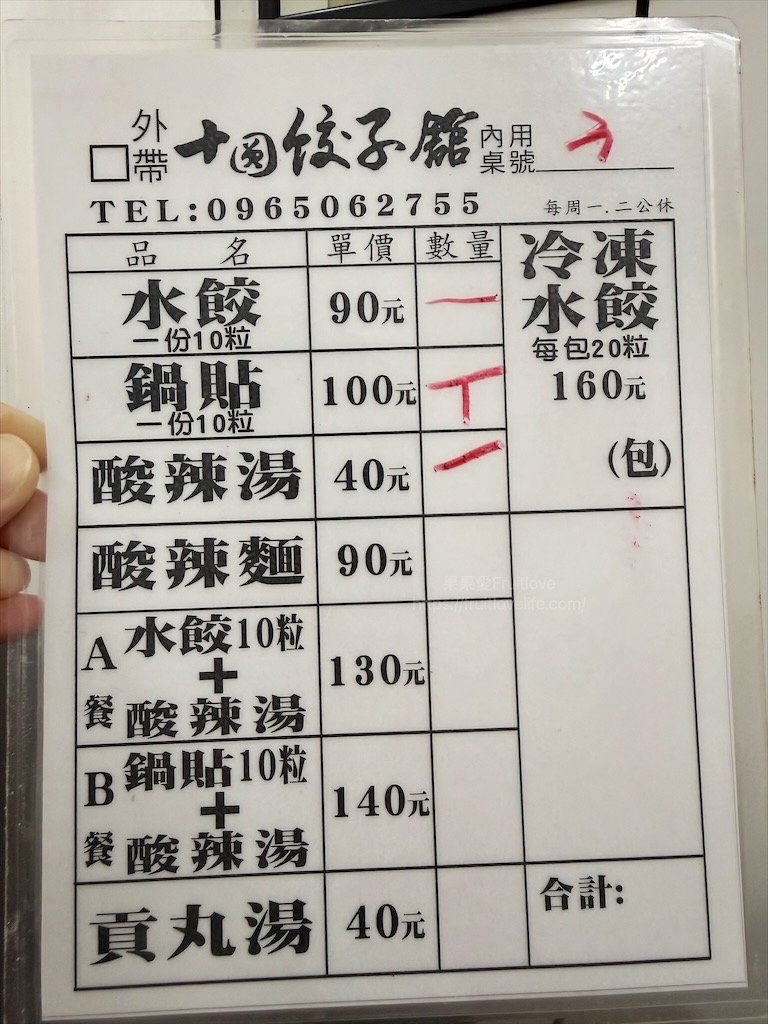 外帶 十圓餃子館 內用桌號
TEL:0965062755 每周一.二公休
品名 單價 數量
水餃 90元 一
一份10粒
鍋貼 100元 丅
一份10粒
酸辣湯 40元 一
酸辣麵 90元
A餐 水餃10粒 + 酸辣湯 130元
B餐 鍋貼10粒 + 酸辣湯 140元
貢丸湯 40元
冷凍
水餃
每包20粒
160元
(包)
果果愛Fruitlove
https://fruitlovelife.com/
合計: